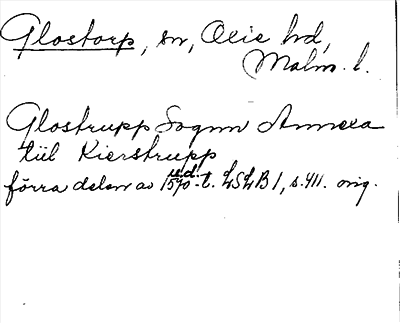 Glostorp, sn, Oxie hd,
Malm. l.
Glostrupp Sognn Annexa
tiil Kierstrupp
förra delen av 1570-t. LSLB 1, s. 411. orig.